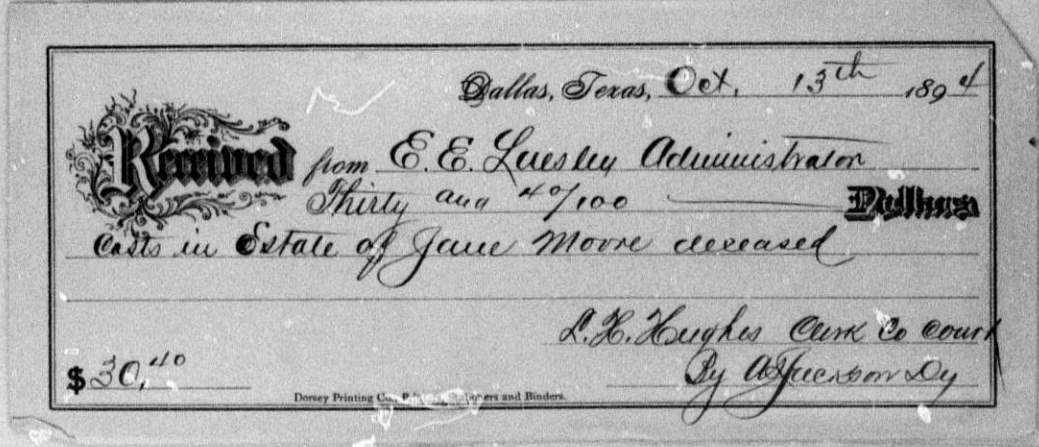 Dallas, Texas, Oct. 13th 1894
Received from E. E. Luesley Administrator
Thirty and 40/100 Dollars
Costs in Estate of Jane Moore deceased
L. H. Hughes Clerk Co Court
$ 30.40 By A Jackson Dy
Dorsey Printing Co., Stationers and Binders.